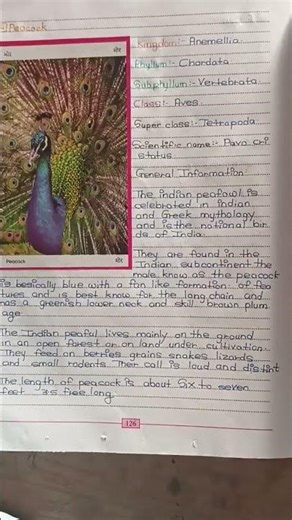 Peacock
મોર
मोर
Kingdom:- Anemellia
Phyllum:- Chordata
Subphyllum:- Vertebrata
Class:- Aves
Super class:- Tetrapoda
Scientific name:- Pavo cri
status
General Information
The indian peafowl is
celebrated in indian
and Greek mythology
and is the national bir
ds of India.
They are found in the
Indian subcontinent the
male know as the peacock
Peacock
मोर
is besically blue with a fan like formation of fea
tures and is best know for the long chain and
has a greenish lower neck and skill brown plum
age
The Indian peaful lives mainly on the ground
in an open forest or on land under cultivation
They feed on berries grains snakes lizards
and small rodents Their call is loud and distint
The length of peacock is about Six to seven
feet 3.5 free long
126